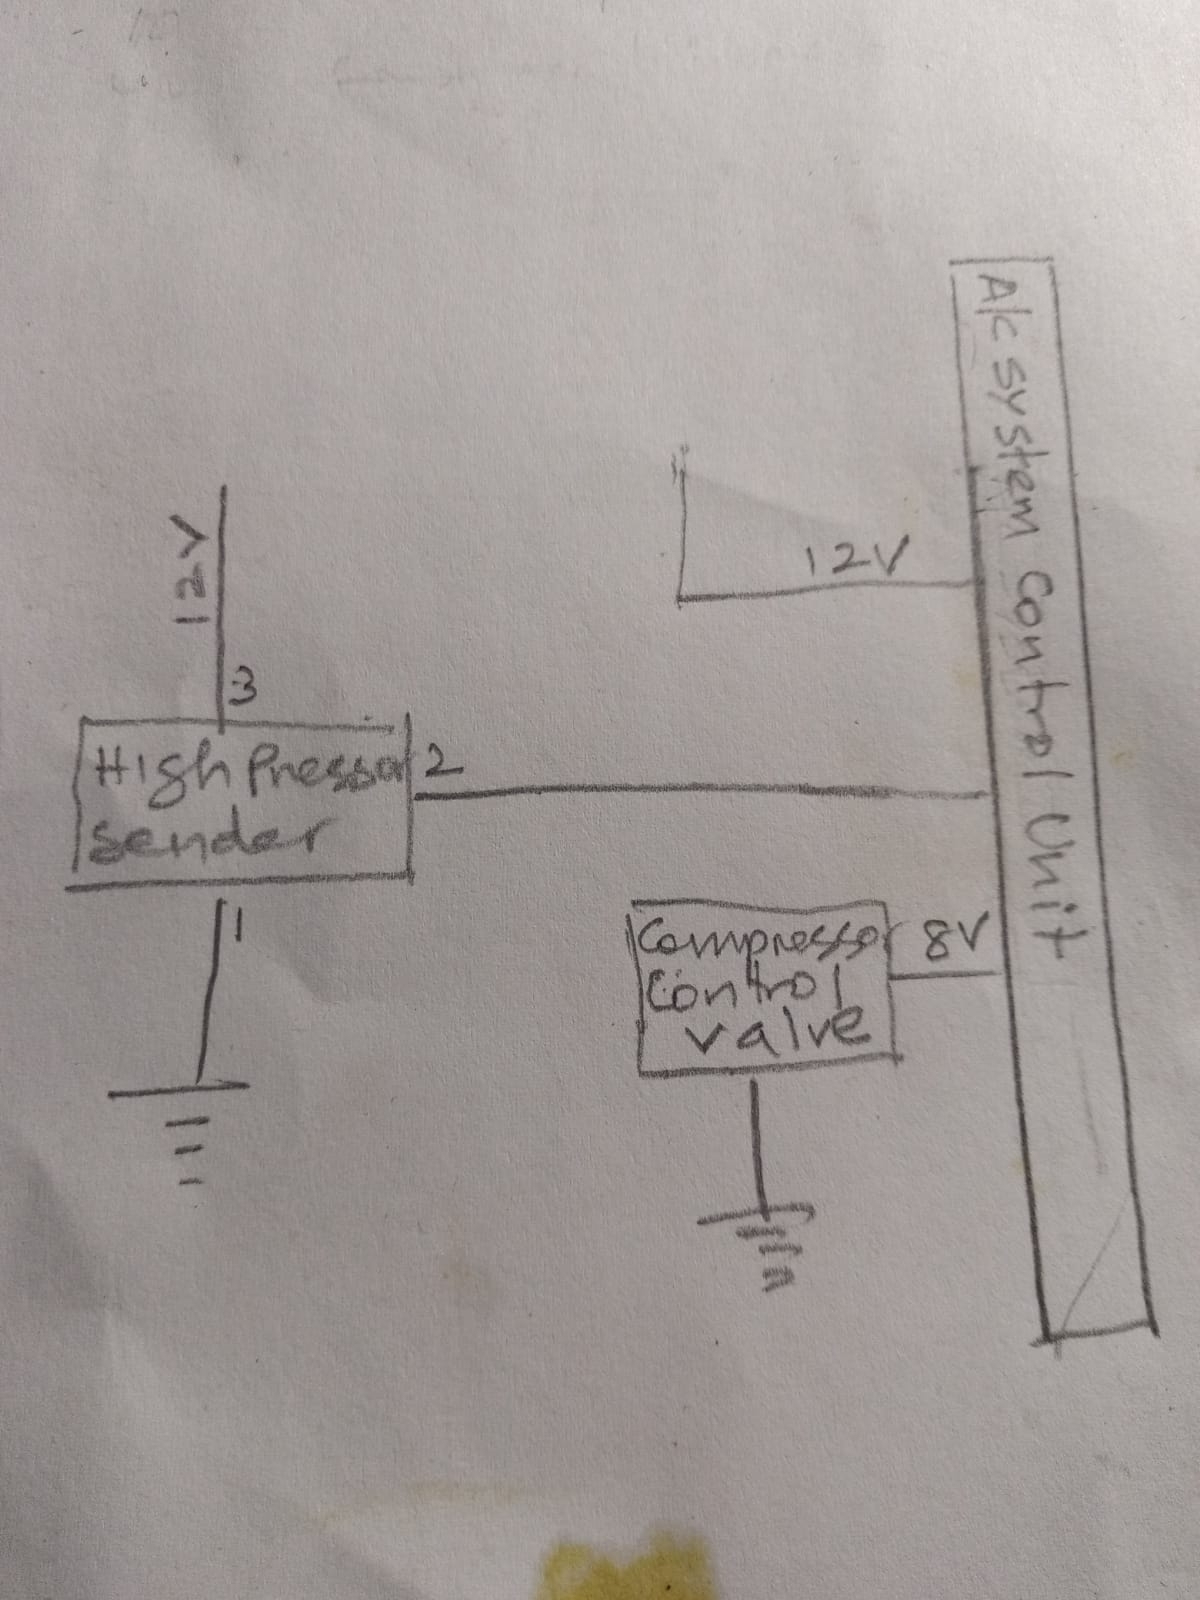 A/c system Control Unit
12V
12V
3
High Pressor
Sender
2
1
Compressor
Control
valve
8V